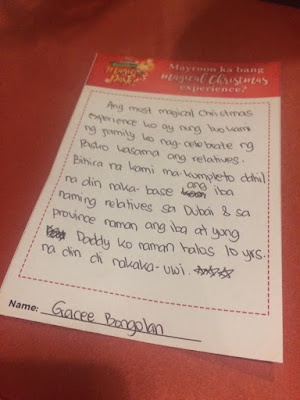 Mayroon ka bang
magical Christmas
experience?
Ang most magical Christmas
experience ko ay nung buo kami
ng family ko nag-celebrate ng
Pasko kasama ang relatives.
Bihira na kami ma-kumpleto dahil
na din naka-base ang iba
naming relatives sa Dubai & sa
province naman ang iba at yong
Daddy ko naman halos 10 yrs.
na din di nakaka-uwi.
Name: Gacee Bongolan